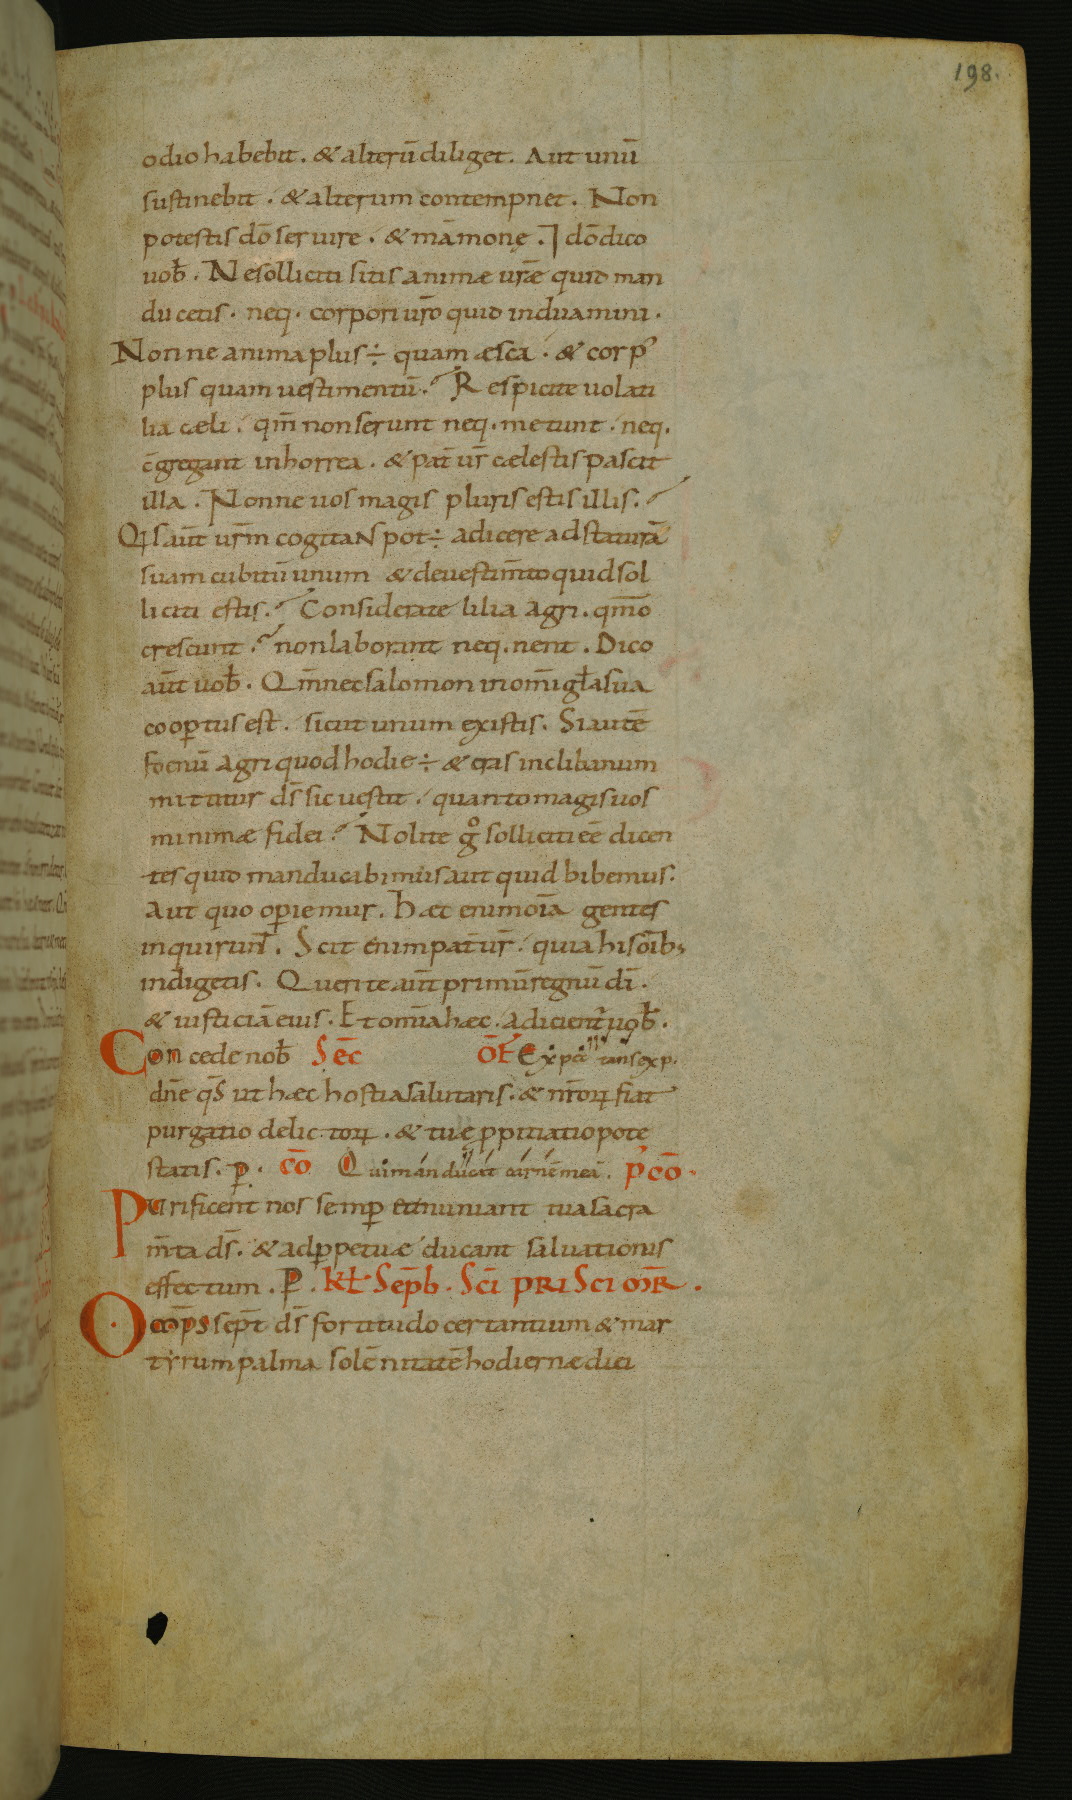 198.
odio habebit. & alterū diliget. Aut unū
sustinebit. & alterum contempnet. Non
potestis dō seruire. & māmonę. Idō dico
uob̄. Ne solliciti sitis animæ urǣ quid man
ducetis. neq. corpori ur̄o quid induamini.
Nonne anima plus ÷ quam æsca. & corp᾿
plus quam uestimentū. Respicite uolati
lia cæli. qm̄ non serunt neq. metunt. neq.
c̄gregant in horrea. & pat̄ ur̄ cælestis pascit
illa. Nonne uos magis pluris estis illis.
Qis aut̄ ur̄m cogitans pot÷ adicere ad staturā
suam cubitū unum & de uestim̄to quid sol
liciti estis. Considerate lilia agri. qm̄o
crescunt. non laborant neq. nent. Dico
aut̄ uob̄. Qm̄ nec salomon in om̄i gl̄a sua
coopertus est. sicut unum ex istis. Si autē
foenū agri quod hodie ÷ & cras in clibanum
mittitur ds̄ sic uestit. quanto magis uos
minimæ fidei. Nolite gͦ solliciti eē dicen
tes quid manducabimus aut quid bibemus.
Aut quo operiemur. Hæc enim om̄ia gentes
inquirunt. Scit enim pat̄ ur̄. quia his om̄ib;
indigetis. Querite aut̄ primū regnū dī.
& iusticiā eius. Et om̄ia hæc. adicient̄ uob̄.
Concede nob̄ Sec̄ Of̄ Expectans exp.
dn̄e qs̄ ut hæc hostia salutaris. & nr̄orꝝ fiat
purgatio delictorꝝ. & tuę ꝓpitiatio pote
statis. ꝑ. cō Qui manducat carnē meā. pcō.
Purificent nos semꝑ et muniant tua sacra
m̄ta ds̄. & ad ꝑpetuæ ducant saluationis
effectum. P. Kl Sepb̄. Sc̄i PRISci mR̄.
Omp̄s sep̄t ds̄ fortitudo certantium & mar
tyrum palma solēnitatē hodiernæ diei